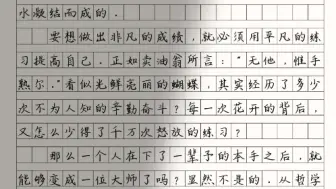 水凝结而成的.
要想做出非凡的成绩,就必须用平凡的练
习提高自己.正如卖油翁所言:“无他,惟手
熟尔.”看似光鲜亮丽的蝴蝶,其实经历了多少
次不为人知的辛勤奋斗?每一次花开的背后,
又怎么少得了千万次怒放的练习?
那么一个人在下了一辈子的本手之后,就
能够变成一位大师了吗?显然不是的.从哲学